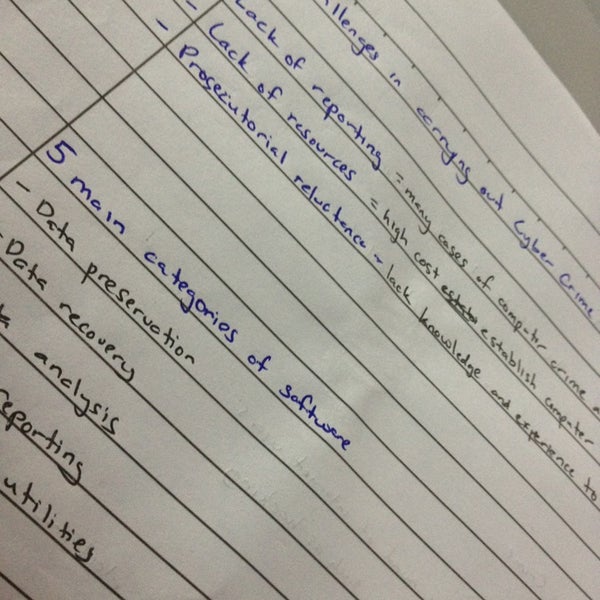 allenges in carrying out Cyber Crime
- Lack of reporting = many cases of computer crime a
- Lack of resources = high cost establish computer
- Prosecutorial reluctance - lack knowledge and experience to
5 main categories of software
- Data preservation
- Data recovery
ta analysis
reporting
utilities